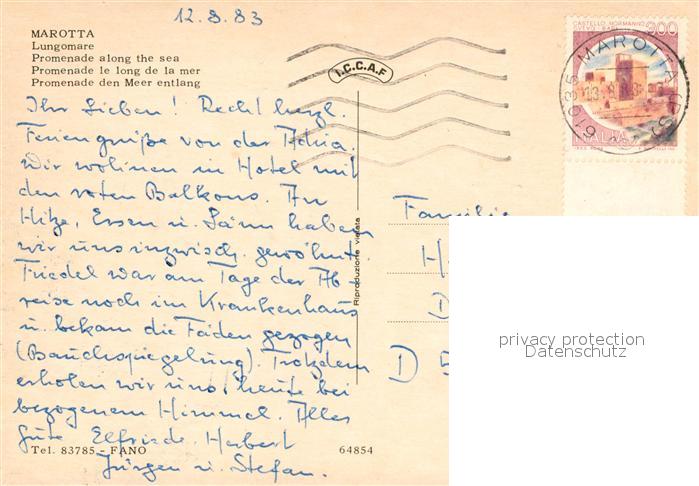 12.8.83
MAROTTA
Lungomare
Promenade along the sea
Promenade le long de la mer
Promenade den Meer entlang
I.C.C.A.F
CASTELLO NORMANNO
SVEVO - BARI
300
ITALIA
61035 MAROTTA (PS)
13.8.83
Ihr Lieben! Recht herzl.
Feriengrüße von der Adria.
Wir wohnen im Hotel mit
den roten Balkons. An
Hitze, Essen u. Lärm haben
wir uns inzwisch. gewöhnt.
Friedel war am Tage der Ab-
reise noch im Krankenhaus
u. bekam die Fäden gezogen
(Bauchspiegelung). Trotzdem
erholen wir uns, heute bei
bezogenem Himmel. Alles
Gute Elfriede, Herbert
Jürgen u. Stefan.
Tel. 83785 - FANO
64854
Riproduzione vietata
Familie
H
D
D 5
privacy protection
Datenschutz